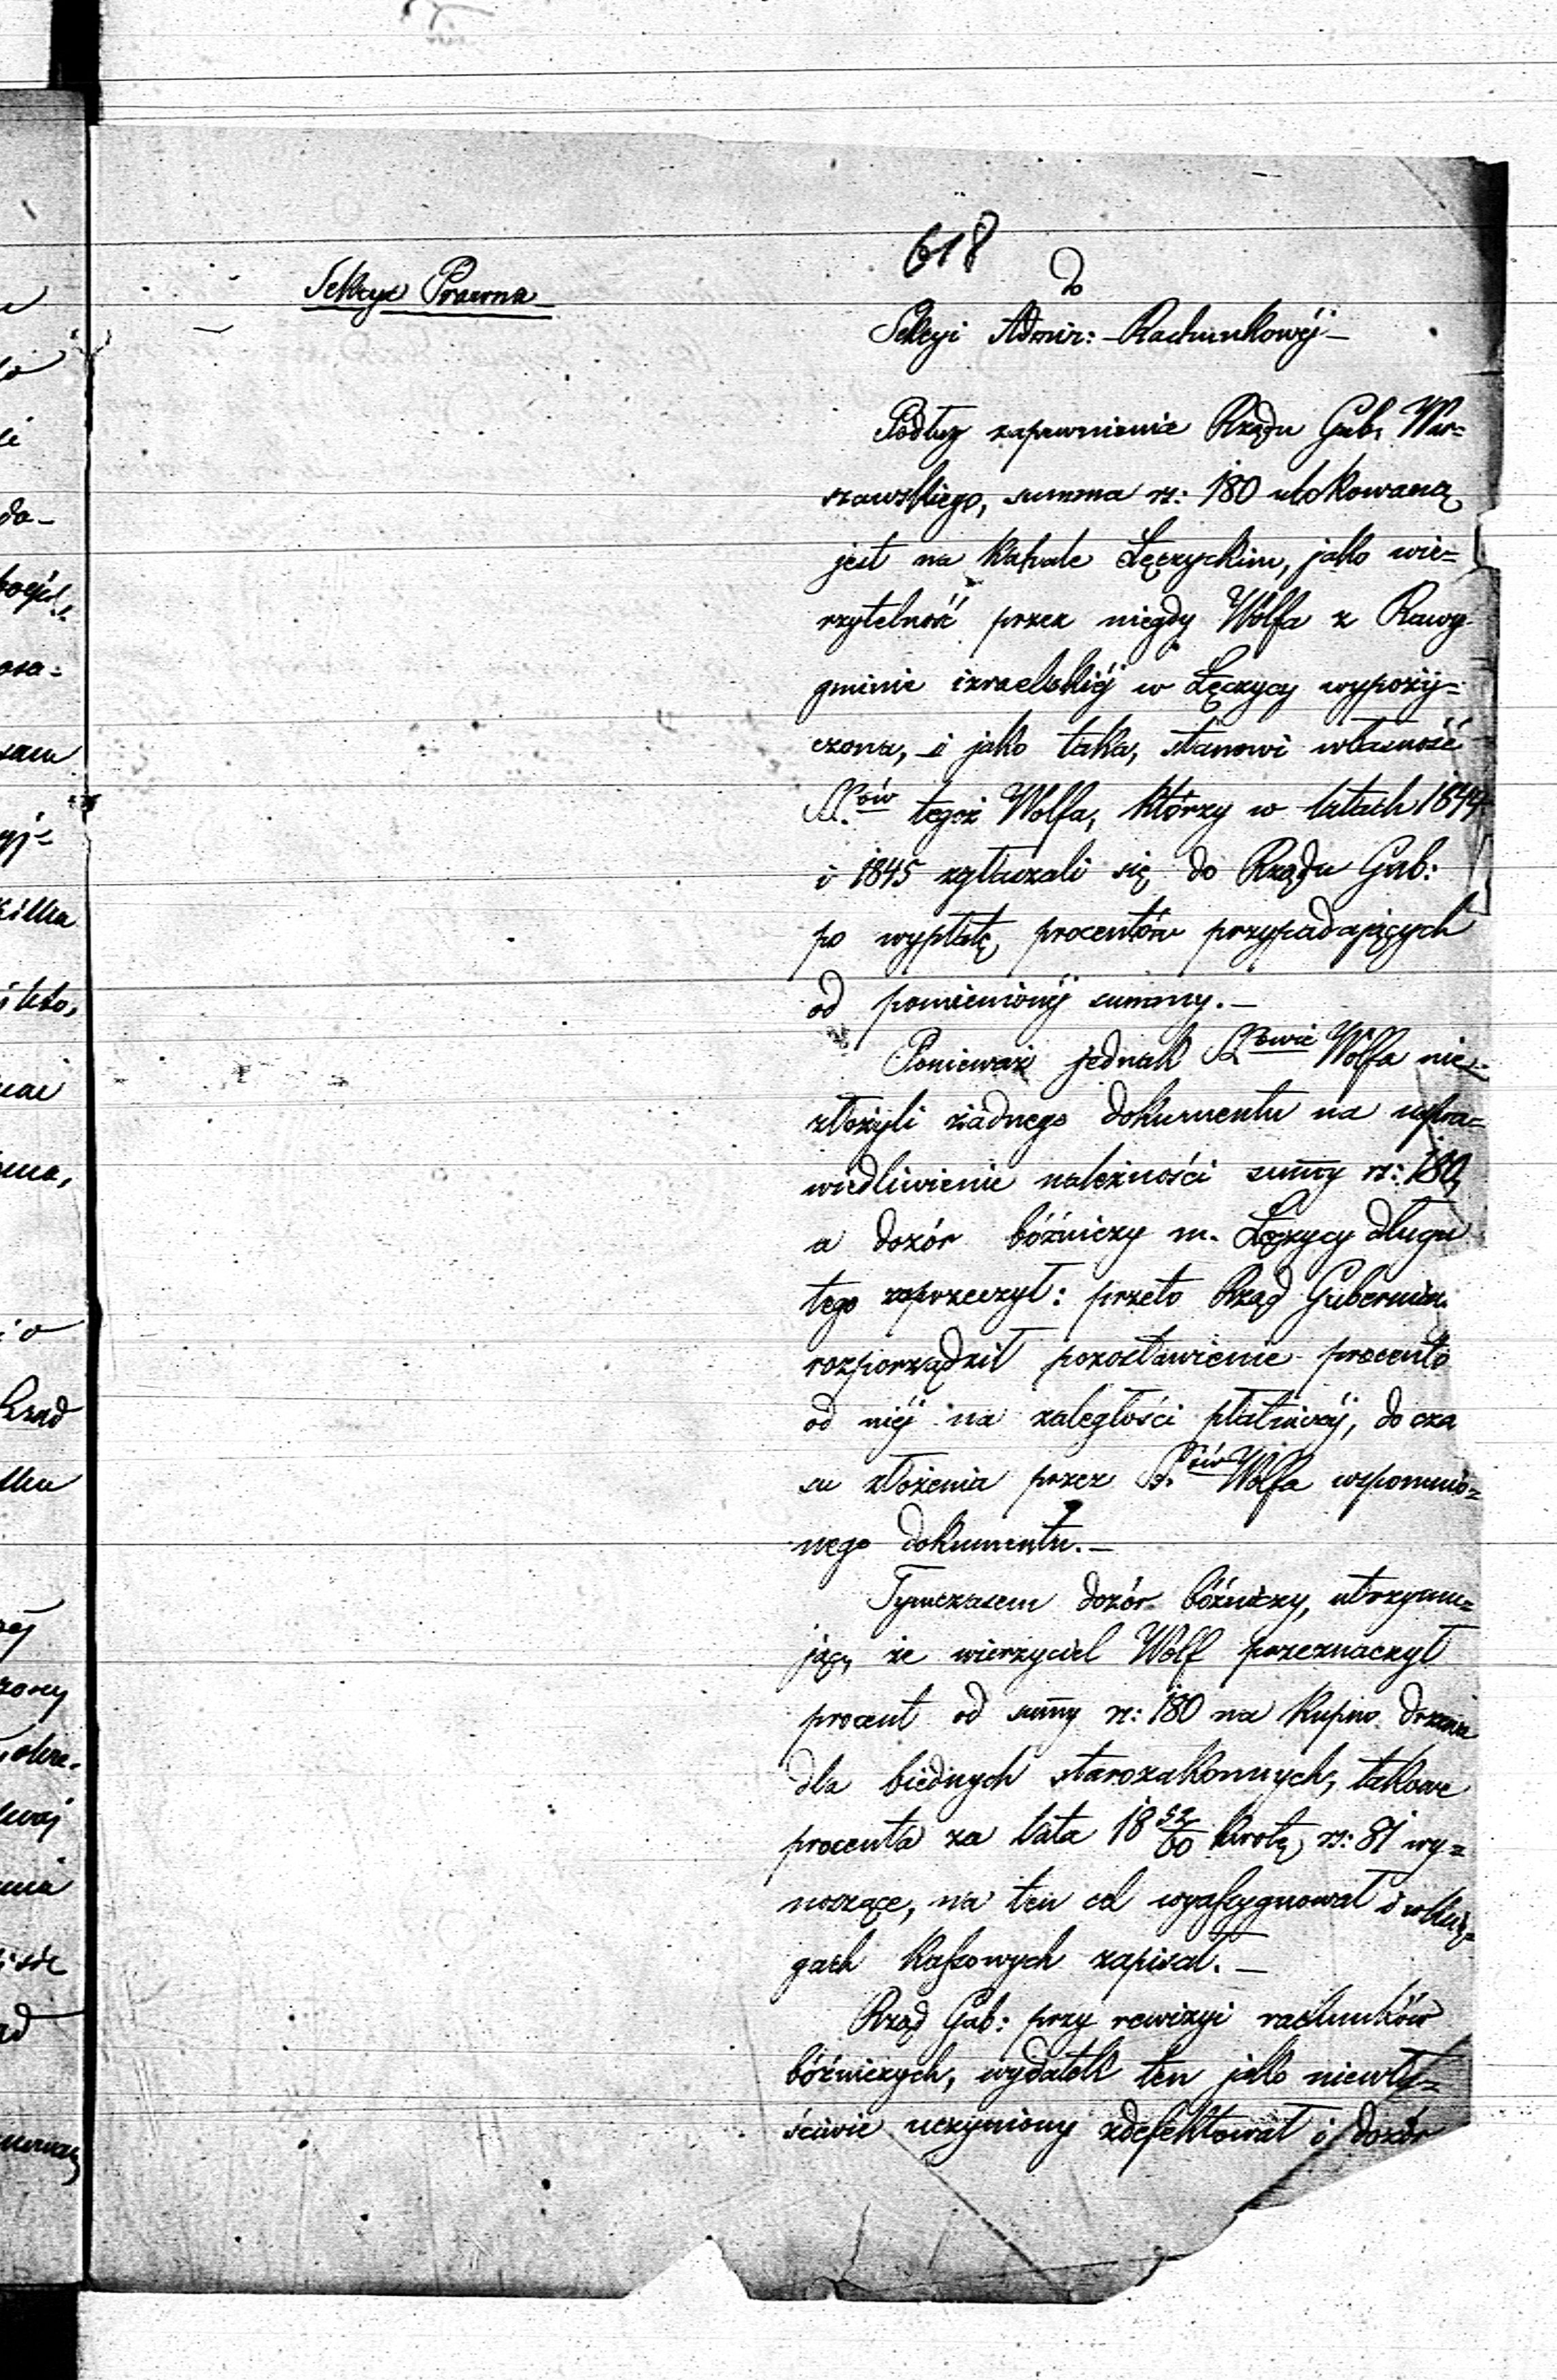 618
Sekcya Prawna
Do
Sekcyi Admin: Rachunkowéj
Podług zapewnienia Rządu Gub. War=
szawskiego, summa rs: 180 ulokowaną
jest na Kahale Łęczyckim, jako wie=
rzytelność przez niegdy Wolfa z Rawy
gminie izraelskiéj w Łęczycy wypoży=
czona, i jako taka, stanowi własność
SS.ów tegoż Wolfa, którzy w latach 1844
i 1845 zgłaszali się do Rządu Gub:
po wypłatę procentów przypadających
od pomienionéj summy.—
Ponieważ jednak SS.owie Wolfa nie
złożyli żadnego dokumentu na uspra=
wiedliwienie należności summy rs: 180,
a dozór bóźniczy m. Łęczycy długu
tego zaprzeczył: przeto Rząd Gubernia.
rozporządził pozostawienie procentó
od niéj na zaległości płatniczéj, do cza
su złożenia przez SS.ów Wolfa wspomnio=
nego dokumentu.—
Tymczasem dozór bóźniczy, utrzymu=
jąc, że wierzyciel Wolf przeznaczył
procent od summy rs: 180 na kupno drzewa
dla biednych starozakonnych, takowe
procenta za lata 18 52/60 kwotę rs: 81 wy=
noszące, na ten cel wyassygnował i w księ=
gach kassowych zapisał.—
Rząd Gub: przy rewizyi rachunków
bóźniczych, wydatek ten jako niewła=
ściwie uczyniony zdefektował i dozór